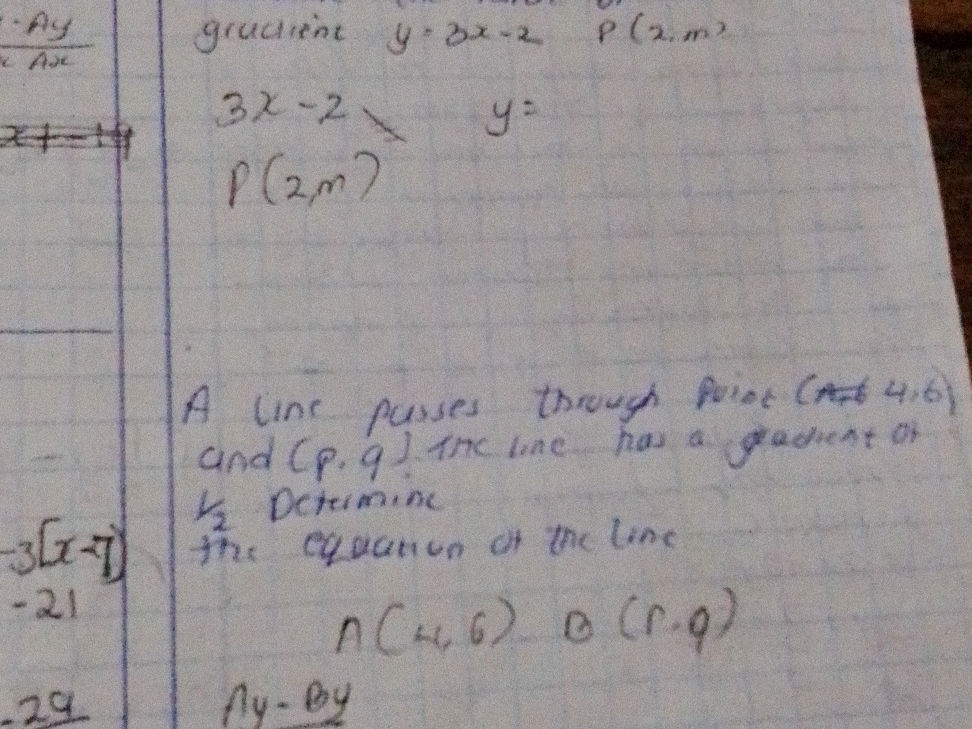 - Ay
Ax
gradient y = 3x - 2 P(2, m)
3x - 2 y =
P(2, m)
A line passes through Point ( 4, 6)
and (p, q). The line has a gradient of
1/2 Determine
the equation of the line
-3[x - 7]
-21
A(4, 6) B(P, q)
-29
Ay - By